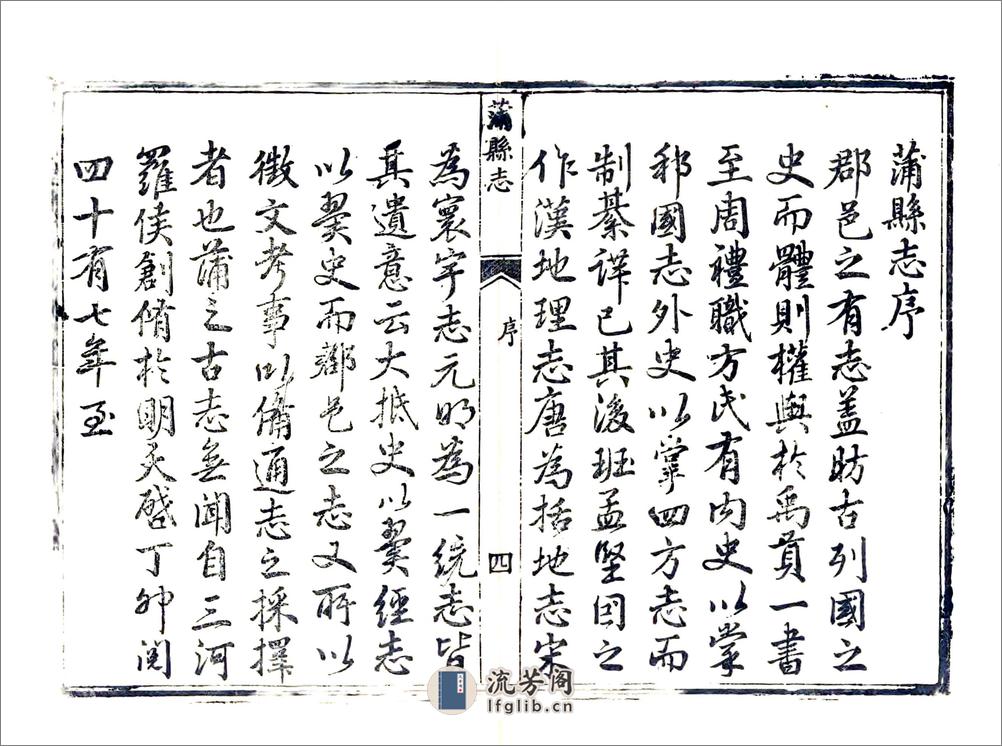 蒲縣志序
郡邑之有志葢昉古列國之
史而體則權輿於禹貢一書
至周禮職方氏有內史以掌
邦國志外史以掌四方志而
制綦詳已其後班孟堅因之
作漢地理志唐為括地志宋
蒲縣志
序
四
為寰宇志元明為一統志皆
其遺意云大抵史以翼經志
以翼史而郡邑之志又所以
徵文考事以備通志之採擇
者也蒲之古志無聞自三河
羅侯創脩於明天啓丁卯閱
四十有七年至
流芳阁
lfglib.cn